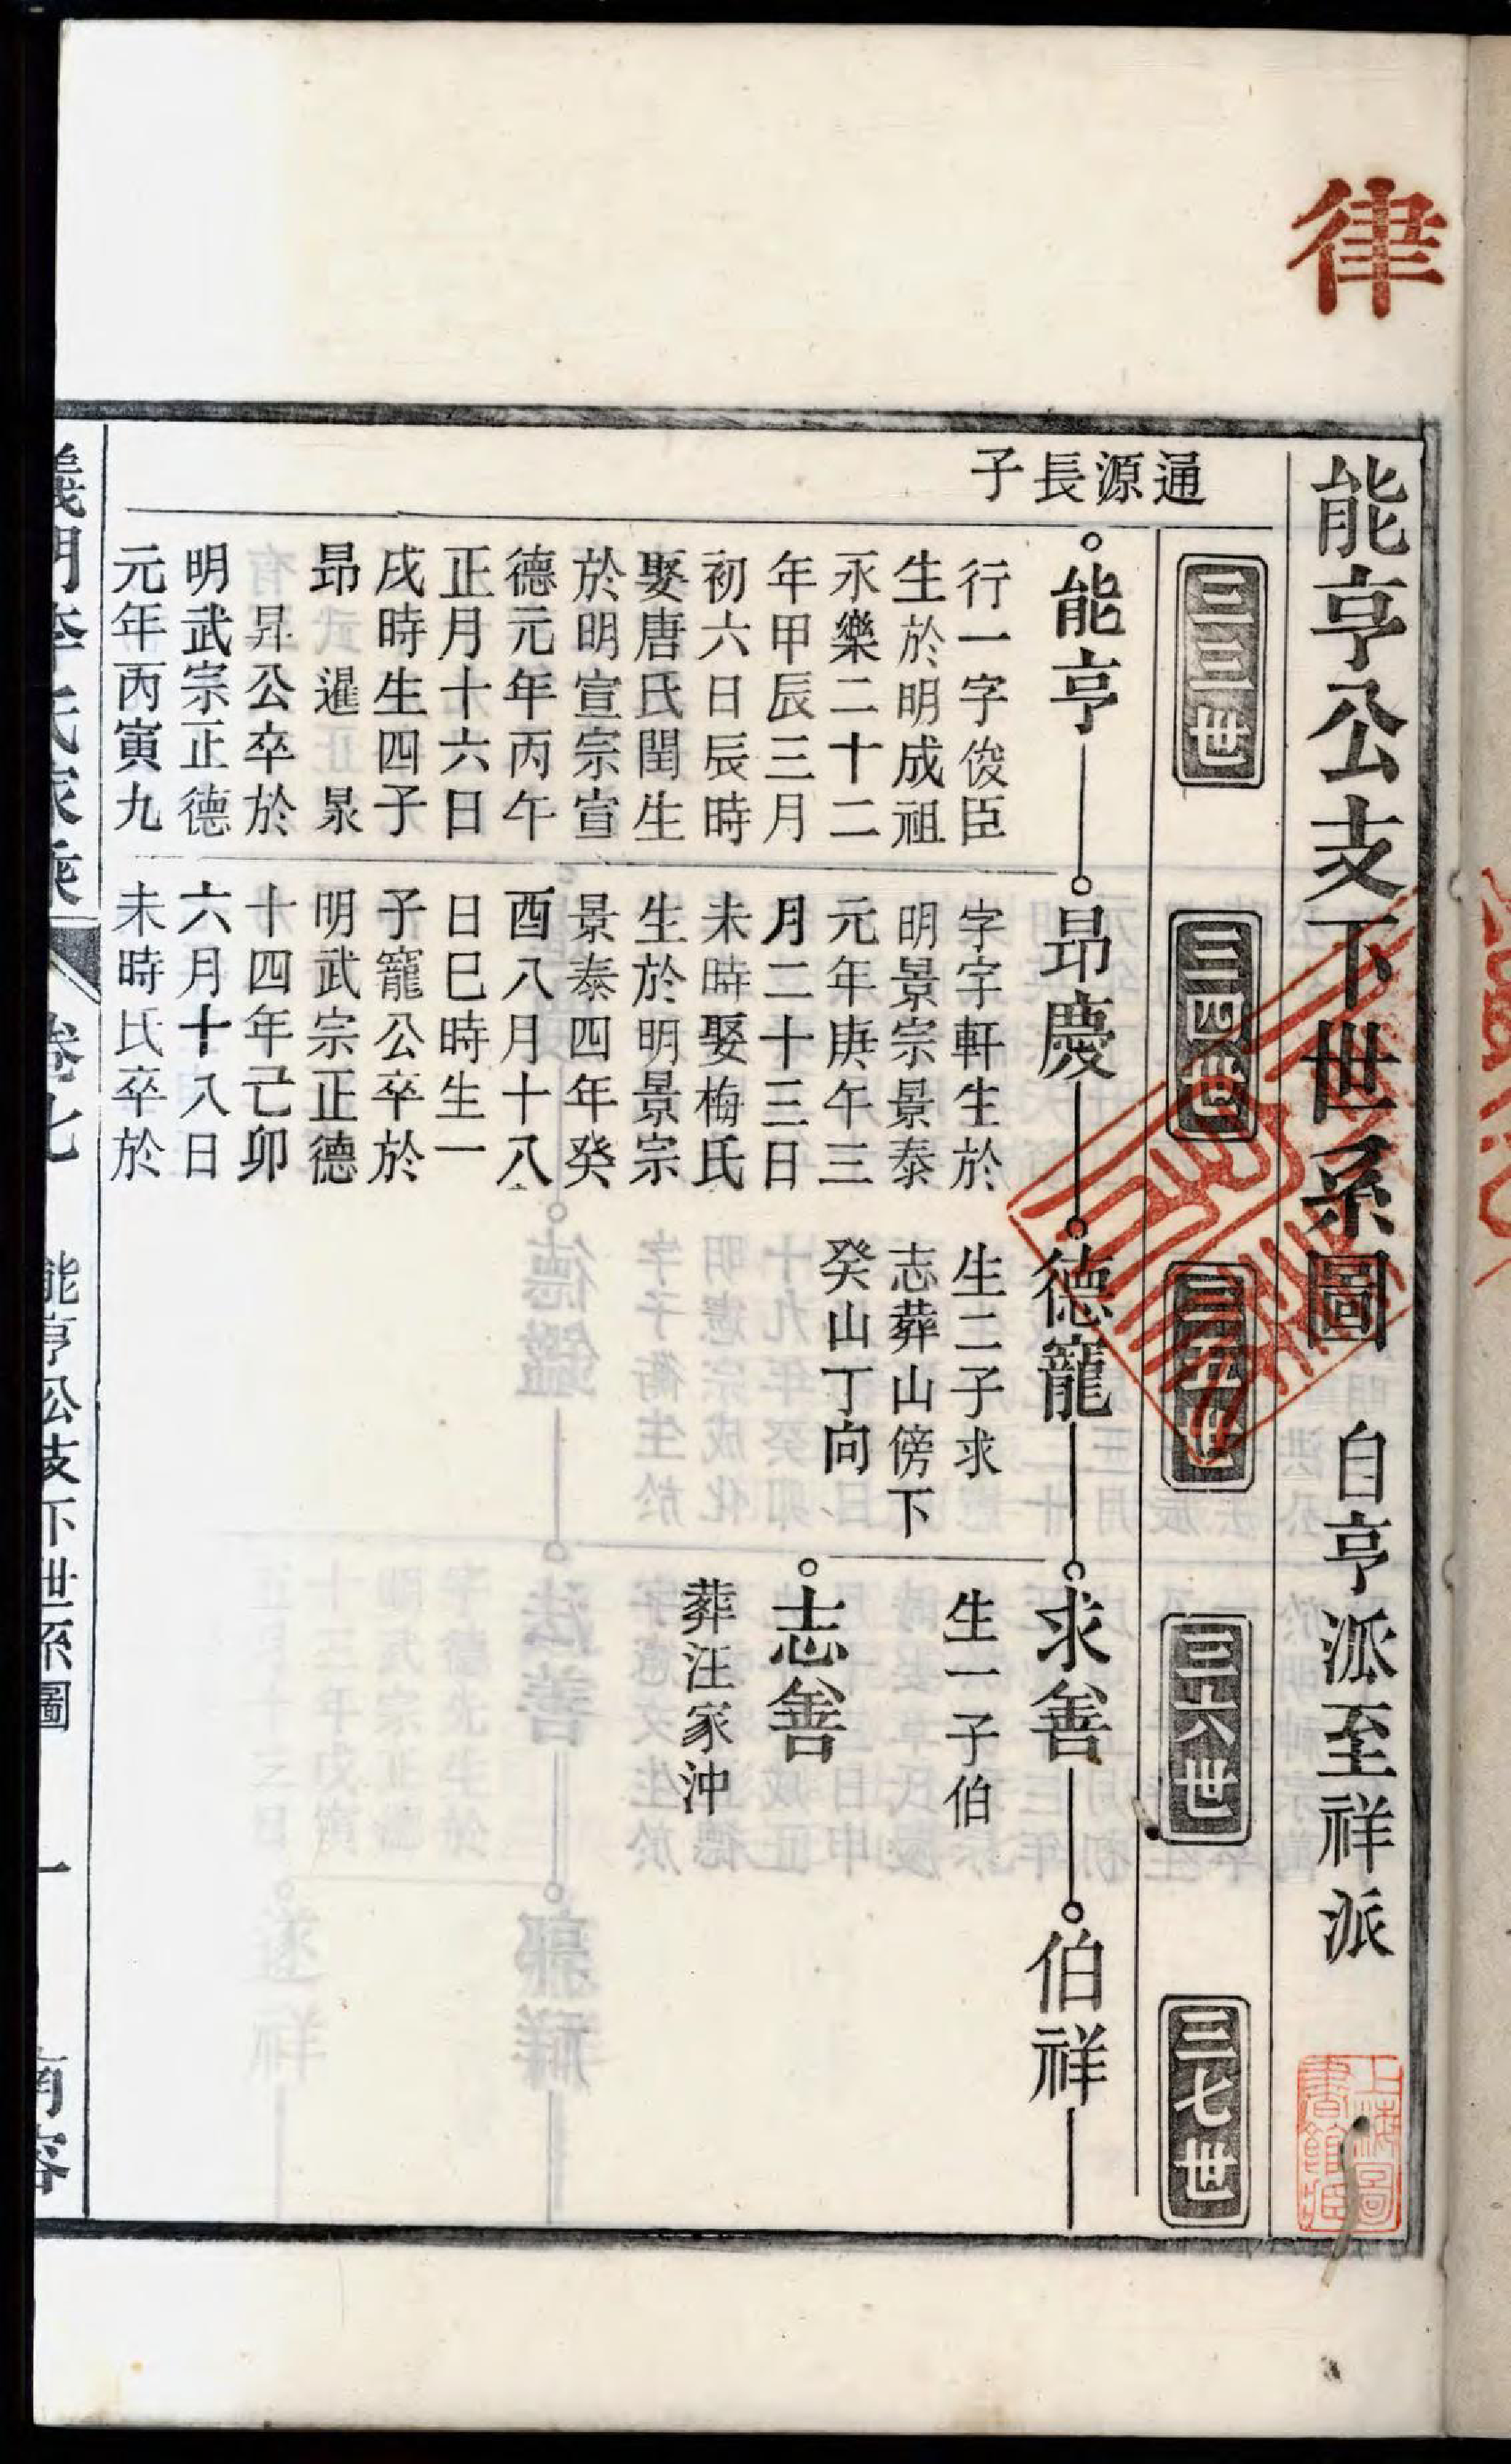 律
能亨公支下世系圖 自亨派至祥派
三三世
三四世
三五世
三六世
三七世
通源長子
能亨
行一字俊臣
生於明成祖
永樂二十二
年甲辰三月
初六日辰時
娶唐氏閏生
於明宣宗宣
德元年丙午
正月十六日
戌時生四子
昂 暹 泉
昇公卒於
明武宗正德
元年丙寅九
昂慶
字字軒生於
明景宗景泰
元年庚午三
月二十三日
未時娶梅氏
生於明景宗
景泰四年癸
酉八月十八
日巳時生一
子寵公卒於
明武宗正德
十四年己卯
六月十八日
未時氏卒於
德寵
生二子求
志葬山傍下
癸山丁向
求善
生一子伯
志善
葬汪家沖
伯祥
義門李氏家乘 卷七 能亨公支下世系圖 一
上海圖書館藏